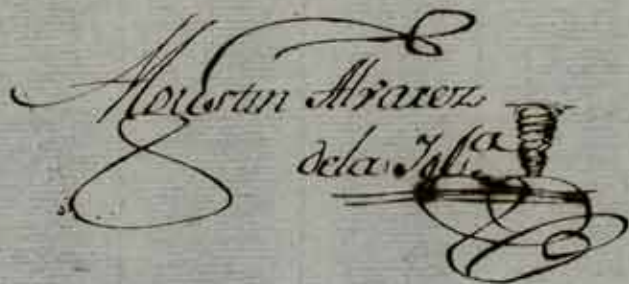 Agustin Alvarez
dela Isla